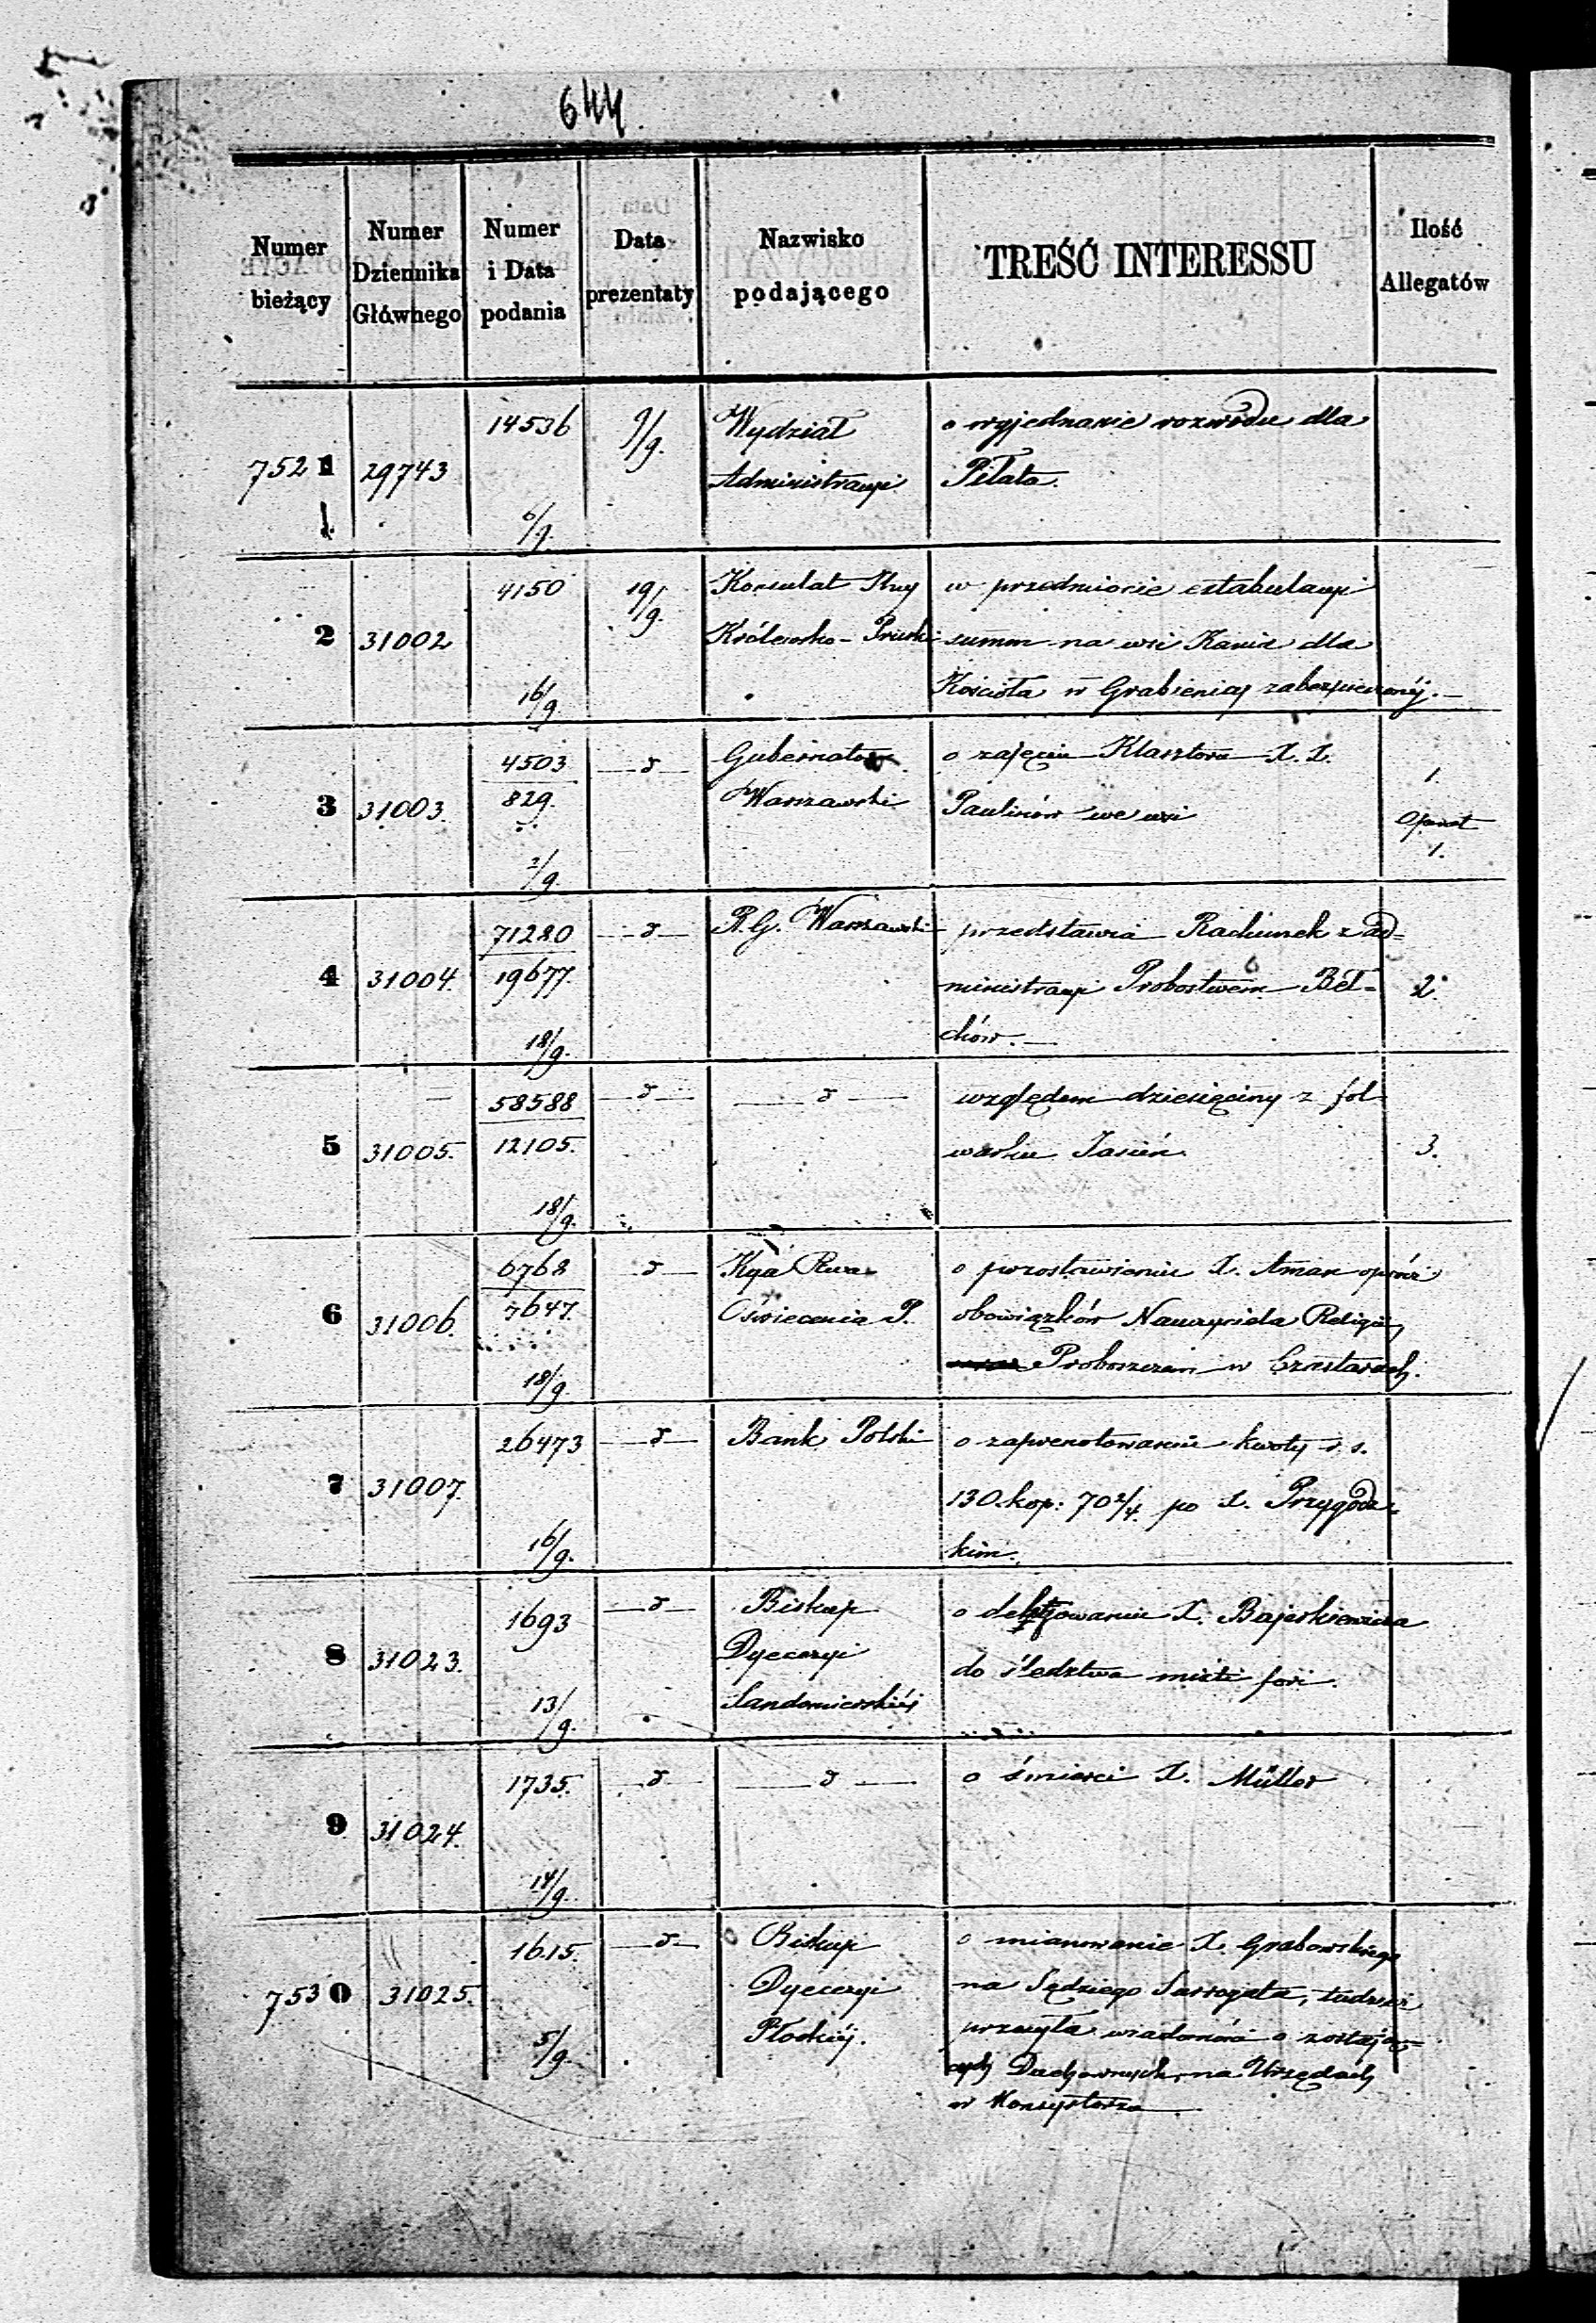 644
Numer bieżący
Numer Dziennika Głównego
Numer i Data podania
Data prezentaty
Nazwisko podającego
TREŚĆ INTERESSU
Ilość Allegatów
7521
29743
14536
6/9.
9/9.
Wydział
Administracyi
o wyjednanie rozwodu dla
Piłata.
2
31002
4150
16/9.
19/9.
Konsulat
Królewsko-Pruski
w przedmiocie extabulacyi
summ na wsi dla
Kościoła w zabezpieczonéj.—
3
31003.
4503
829.
2/9.
—d—
Gubernator
Warszawski
o zajęciu Klasztora X. X.
Paulinów we wsi
1.
1.
4
31004.
71280
19677.
18/9.
—d—
R. G. Warszawski
przedstawia Rachunek z ad=
ministracyi Probostwem Beł=
chów.—
2.
5
31005.
58588
12105.
18/9.
—d—
—d—
względem dziesięciny z fol-
warku Jasień.
3.
6
31006.
6768
7647.
18/9.
—d—
Oświecenia P.
o pozostawieniu X. Aman oprócz
obowiązków Nauczyciela Religii,
Proboszczem w Czastarach.
7
31007.
26473
16/9.
—d—
Bank Polski
o zaprenotowanie kwoty r. s.
130. kop: 70 2/4. po X. Przygodz=
kim.
8
31023.
1693
13/9.
—d—
Biskup
Dyecezyi
Sandomierskiéj
o delegowanie X. Bajerkiewicza
do śledztwa fori.
9
31024.
1735.
14/9.
—d—
—d—
o śmierci X. Müller
7530
31025.
1615.
5/9.
—d—
Biskup
Dyecezyi
Płockiéj.
o mianowanie X. Grabowskiego
na Sędziego Surrogata, tudzież
przesyła wiadomość o zostają=
cych Duchownych na Urzędach
w Konsystorza